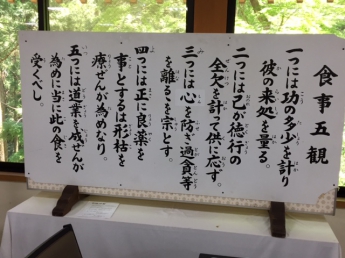 食事五観
一つには功の多少を計り
彼の来処を量る。
二つには己が徳行の
全欠を計って供に応ず。
三つには心を防ぎ過貪等
を離るを宗とす。
四つには正に良薬を
事とするは形枯を
療ぜんが為めなり。
五つには道業を成ぜんが
為めに当に此の食を
受くべし。